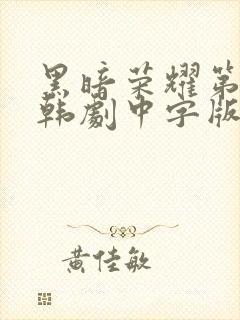 黑暗荣耀第
韩劇中字版
黄佳敏